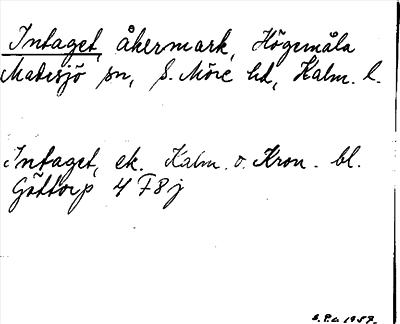 Intaget, åkermark, Högemåla
Madesjö sn, S. Möre hd, Kalm. l.
Intaget, ek. Kalm. o. Kron. bl.
Göttorp 4 F 8 j
1957.